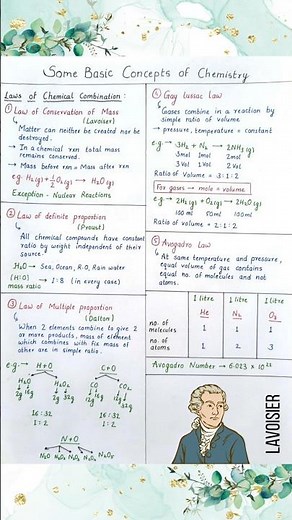 Some Basic Concepts of Chemistry
Laws of Chemical Combination :
① Law of Conservation of Mass
(Lavoiser)
Matter can neither be created nor be
destroyed.
→ In a chemical rxn total mass
remains conserved.
→ Mass before rxn = Mass after rxn
e.g. H₂(g) + 1/2 O₂(g) → H₂O(g)
Exception - Nuclear Reactions
② Law of definite proportion
(Proust)
All chemical compounds have constant
ratio by weight independent of their
source.
H₂O → Sea, Ocean, R.O, Rain water
(H:O) → 1:8 (in every case)
mass ratio
③ Law of Multiple proportion
(Dalton)
When 2 elements combine to give 2
or more products, mass of element
which combines with fix mass of
other are in simple ratio.
e.g. →
H+O
C+O
H₂O
H₂O₂
CO
CO₂
2g 16g
2g 32g
12g 16g
12g 32g
16 : 32
16 : 32
1 : 2
1 : 2
N+O
N₂O
④ Gay lussac Law
Gases combine in a reaction by
simple ratio of volume
→ pressure, temperature = constant
e.g → 3H₂ + N₂ → 2NH₃(g)
3mol 1mol 2mol
3Vol 1Vol 2Vol
Ratio of Volume = 3:1:2
For gases → mole = volume
e.g → 2H₂(g) + O₂(g) → 2H₂O(g)
100ml 50ml 100ml
Ratio of volume = 2:1:2
⑤ Avogadro Law
At same temperature and pressure,
equal volume of gas contains
equal no. of molecules and not
atoms.
1 litre 1 litre 1 litre
He N₂ O₃
no. of
molecules 1 1 1
no. of
atoms 1 2 3
Avogadro Number → 6.023 × 10²³
LAVOISIER